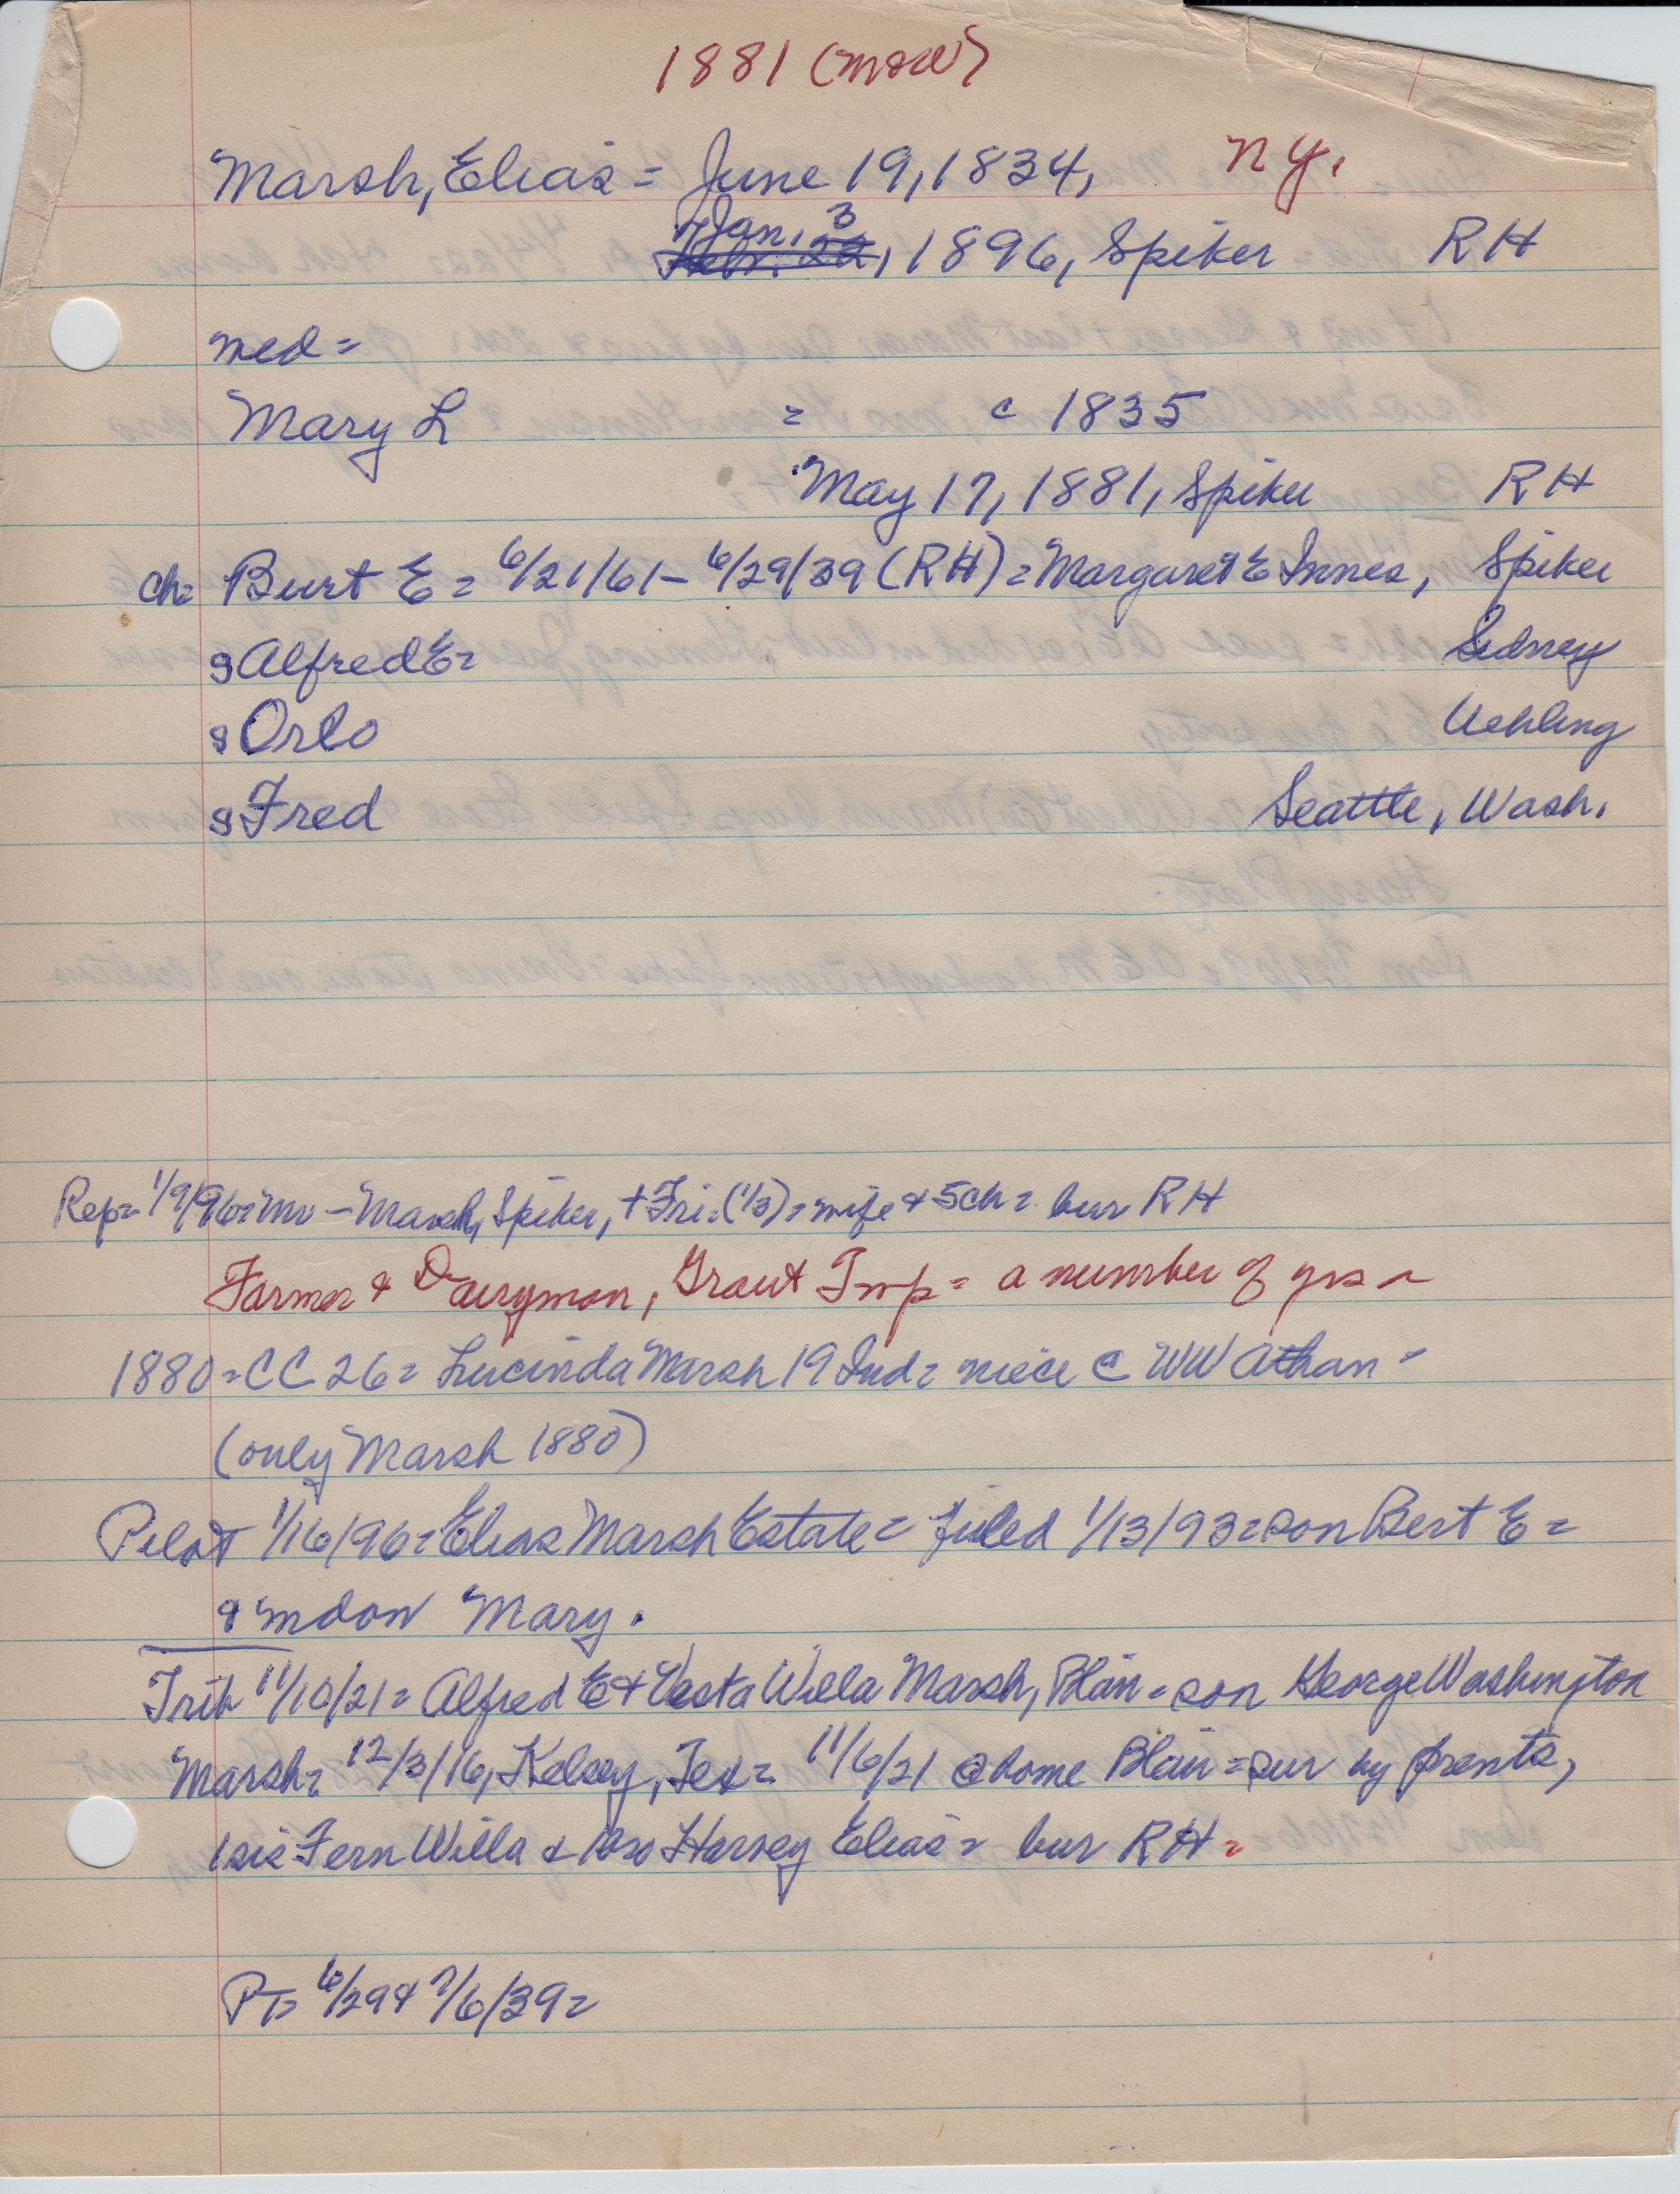 1881 (mow)
Marsh, Elias = June 19, 1834, NY.
Jan. 3
Febr. 22, 1896, Spiker RH
med =
Mary L = c 1835
May 17, 1881, Spiker RH
ch = Burt E = 6/21/61 - 6/29/39 (RH) = Margaret E Innes, Spiker
s Alfred E = Sidney
s Orlo Uehling
s Fred Seattle, Wash.
Rep = 1/9/96 = Mr - Marsh, Spiker, + Fri. (1/3) = wife & 5 ch = bur RH
Farmer & Dairyman, Grant Twp = a number of yrs
1880 = CC 26 = Lucinda Marsh 19 Ind = niece c WW Athan -
(only Marsh 1880)
Pilot 1/16/96 = Elias Marsh Estate = filed 1/13/93 = son Bert E =
& widow Mary.
Trib 11/10/21 = Alfred E & Vesta Willa Marsh, Blair = son George Washington
Marsh = 12/3/16, Kelsey, Tex = 11/6/21 @ home Blair = sur by prents,
1 sis Fern Willa & 1 bro Harvey Elias = bur RH =
PT = 6/29 & 7/6/39 =